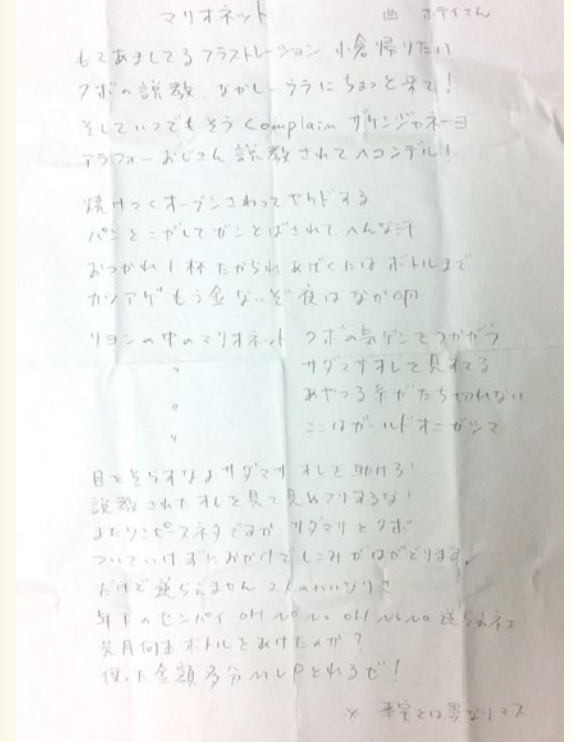 マリオネット 曲 ホテイさん
もてあましてる フラストレーション 小倉帰りたい
クボの説教 なかしーウラにちょっと来て!
そしていつでもそう Complaim ザケンジャネーヨ
アラフォーおじさん 説教されてヘコンデル!
焼けつくオーブンさわってヤケドする
パンをこがしてガンとばされて へんな汁
おつかれ1杯たかられ あげくにはボトルまで
カツアゲもう金ないぞ 夜はなか卯
リヨンの中のマリオネット クボの気ゲンをうかがう
〃 サダマサオレを見すてる
〃 あやつる糸がたち切れない
〃 ここはガールドオニガシマ
目をそらすなよサダマサ オレを助けろ!
説教されたオレを見て見ぬフリするな!
またワンピースネタですか サダマサとクボ
ついていけずにおかげでしこみがはかどります。
だけど逆らえません 2人のいいなりさ
年下のセンパイ OH NoNo OH NoNo 逆らえネェ
先月何本ボトルをあけたのか?
使った金額多分MVPとれるぜ!
※ 事実とは異なりマス